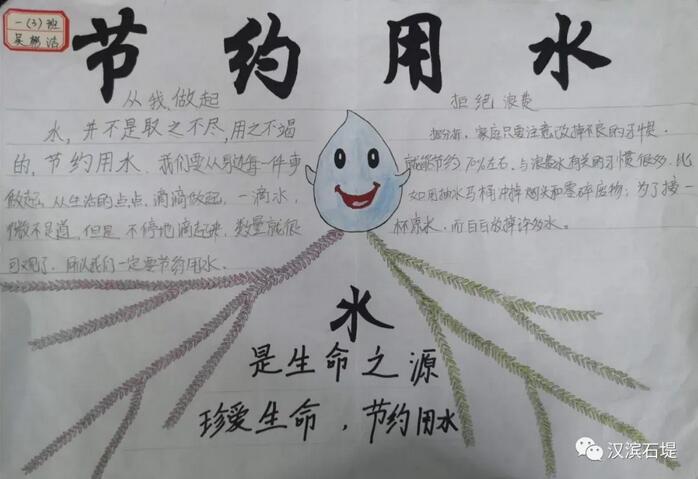 一(3)班
吴彬浩
节约用水
从我做起
水，并不是取之不尽，用之不竭
的，节约用水，我们要从身边每一件事
做起，从生活的点点，滴滴做起，一滴水，
微不足道，但是不停地滴起来，数量就很
可观了，所以我们一定要节约用水。
拒绝浪费
据分析，家庭只要注意改掉不良的习惯，
就能节约70%左右，与浪费水有关的习惯很多，比
如用抽水马桶冲掉烟头和零碎废物；为了接一
杯凉水，而白白放掉许多水。
水
是生命之源
珍爱生命，节约用水
汉滨石堤